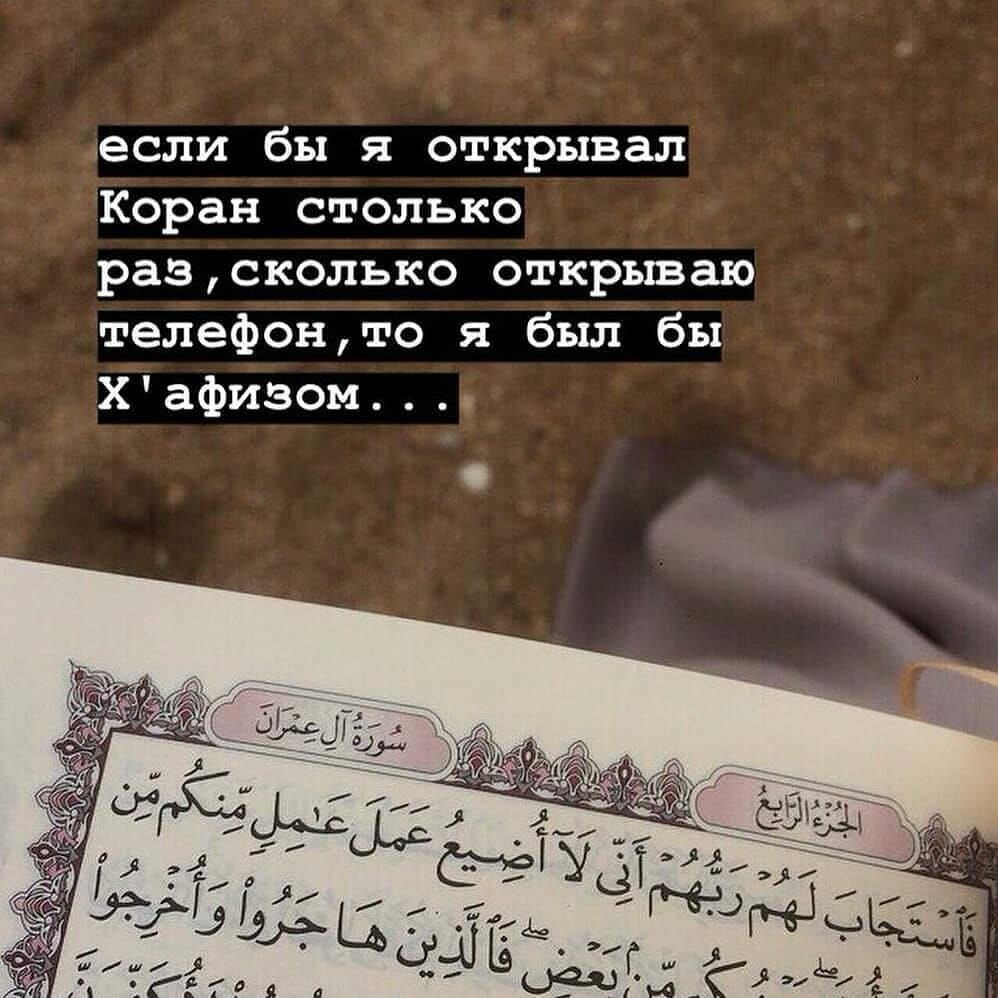 если бы я открывал
Коран столько
раз,сколько открываю
телефон,то я был бы
Х'афизом...
سُورَةُ آلِ عِمْرَان
الجُزْءُ الرَّابِعُ
فَٱسْتَجَابَ لَهُمْ رَبُّهُمْ أَنِّي لَآ أُضِيعُ عَمَلَ عَـٰمِلٍ مِّنكُم مِّن
بَعْضُكُم مِّنۢ بَعْضٍۖ فَٱلَّذِينَ هَاجَرُوا۟ وَأُخْرِجُوا۟